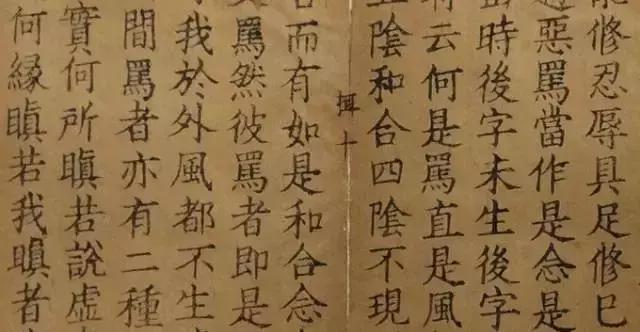 能修忍辱具足修已
惡罵當作是念是
時後字未生後字
云何是罵直是風
陰和合四陰不現
十
而有如是和合念
罵然彼罵者即是
我於外風都不生
間罵者亦有二種
實何所瞋若說虛
何緣瞋若我瞋者